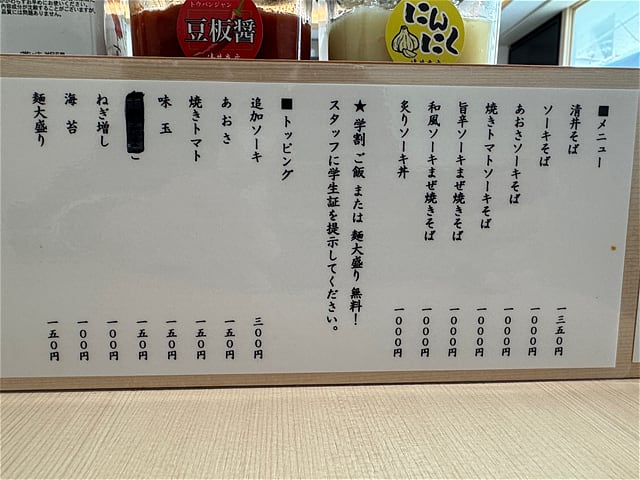 トウバンジャン
豆板醤
にんにく
■メニュー
清井そば 一三五〇円
ソーキそば 一〇〇〇円
あおさソーキそば 一〇〇〇円
焼きトマトソーキそば 一〇〇〇円
旨辛ソーキまぜ焼きそば 一〇〇〇円
和風ソーキまぜ焼きそば 一〇〇〇円
炙りソーキ丼 一〇〇〇円
★学割 ご飯 または 麺大盛り 無料!
スタッフに学生証を提示してください。
■トッピング
追加ソーキ 三〇〇円
あおさ 一五〇円
焼きトマト 一五〇円
味玉 一五〇円
一五〇円
ねぎ増し 一〇〇円
海苔 一〇〇円
麺大盛り 一五〇円